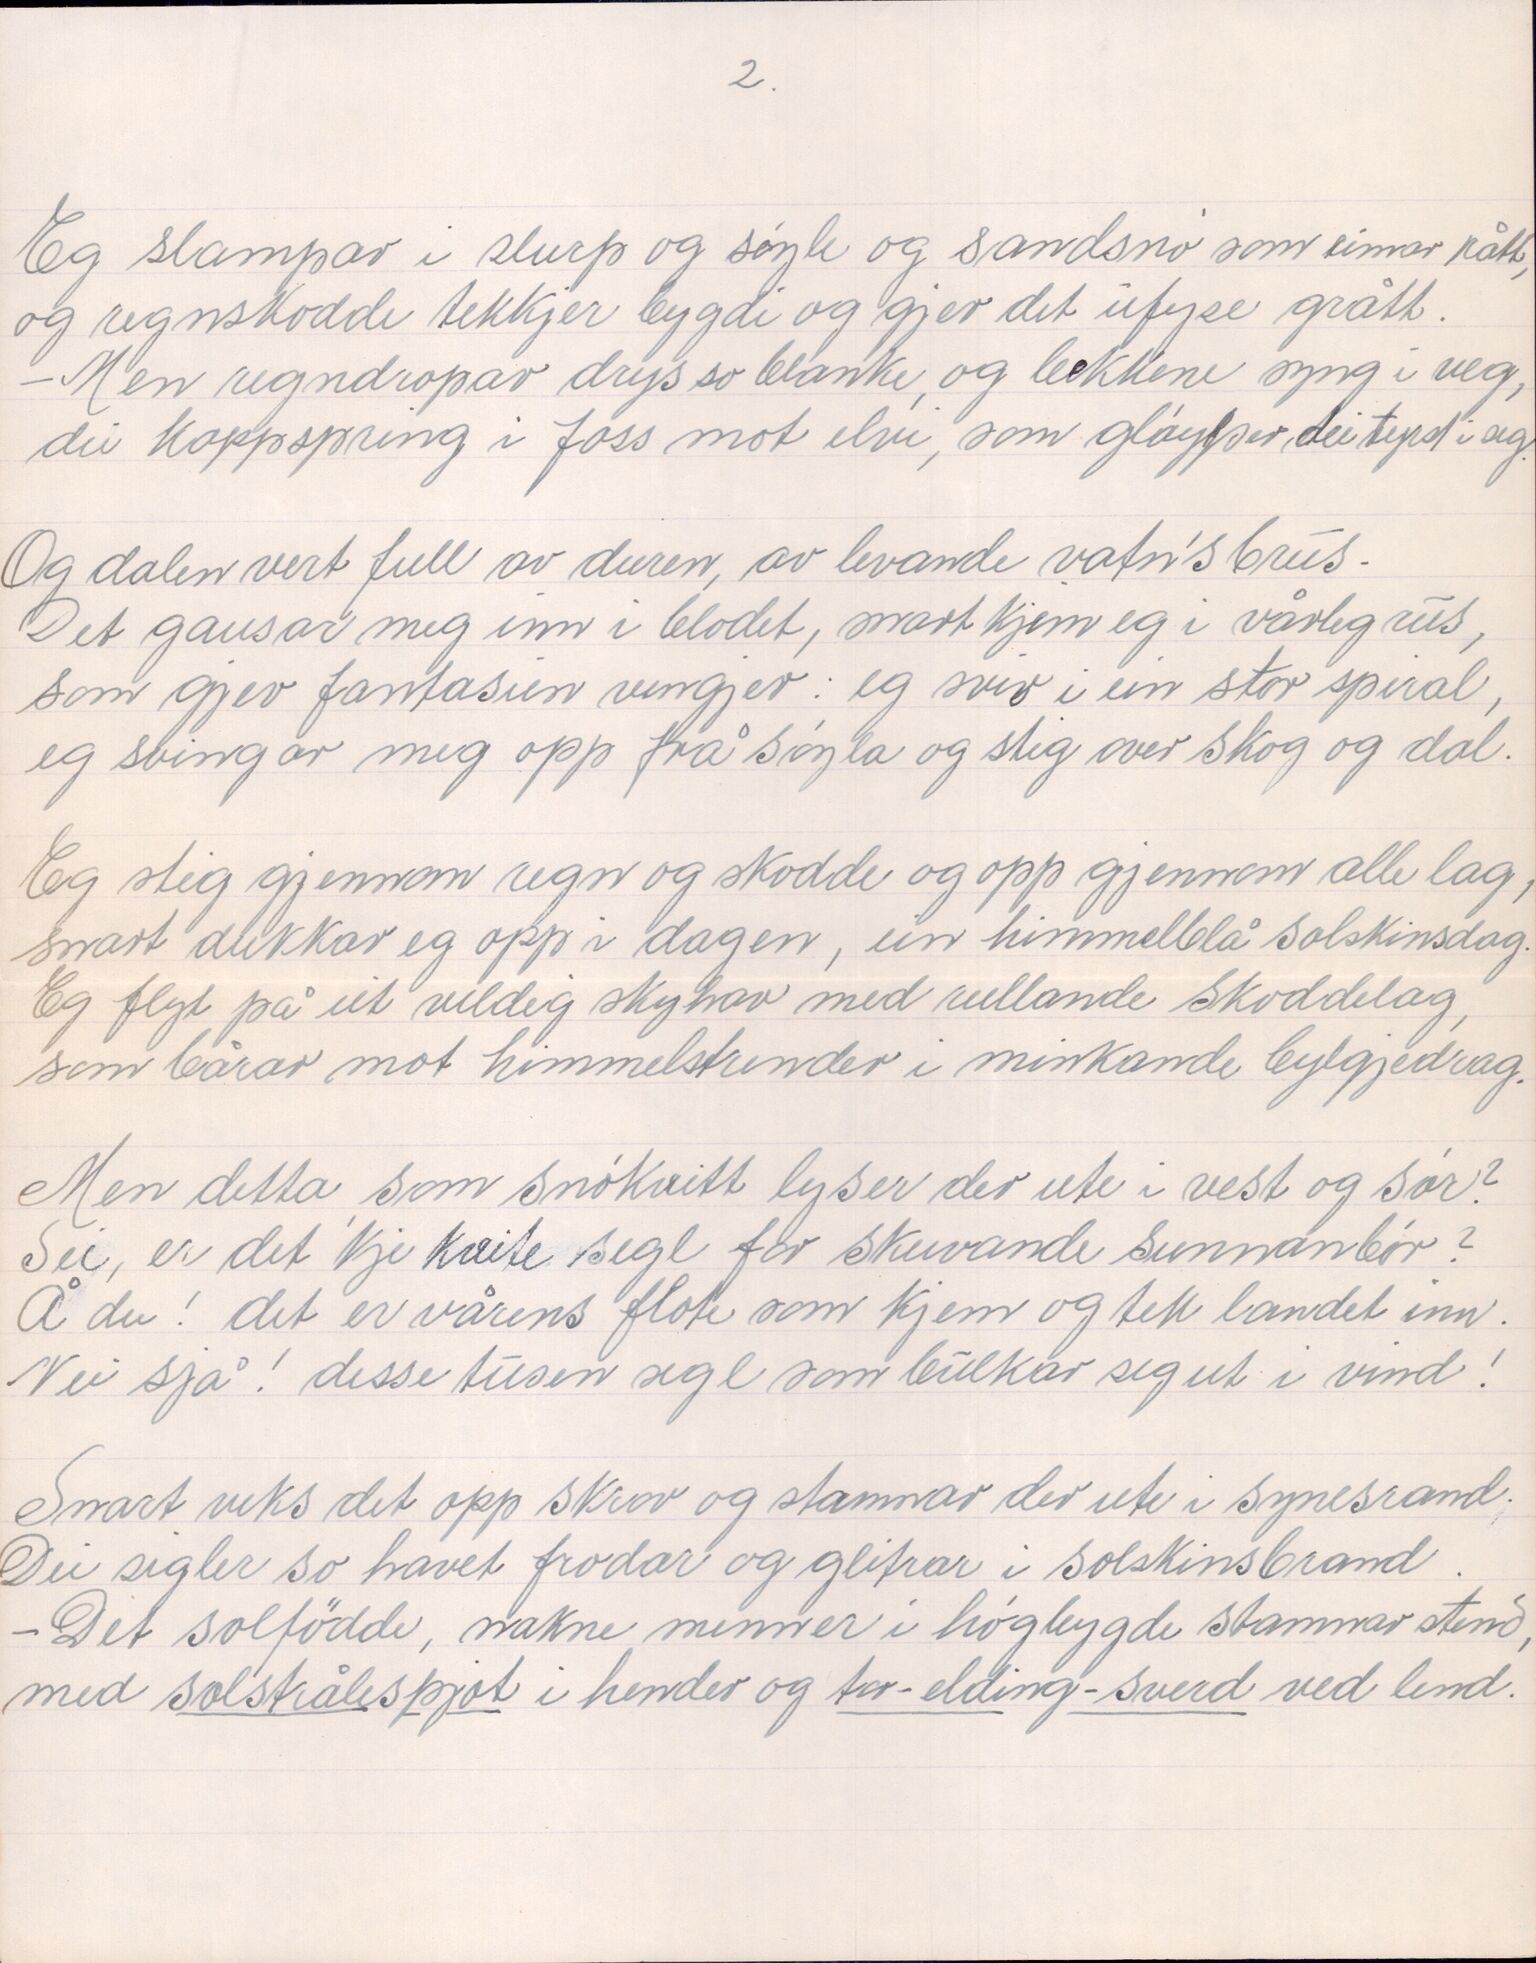 2.
Eg slampar i slurp og söyle og sandsnö som eimar rått,
og regnskodde tekkjer bygdi og gjer det ufyse grått.
– Men regndropar drys so blanke, og bekkene syng i veg,
dei kappspring i foss mot elvi, som glöyper dei tyrst i seg.
Og dalen vert full av duren, av levande vatn's brus.
Det gausar meg inn i blodet, snart kjem eg i vårleg rus,
som gjev fantasien vengjer: eg sviv i ein stor spiral,
eg svingar meg opp frå söyla og stig over skog og dal.
Eg stig gjennom regn og skodde og opp gjennom alle lag,
snart dukkar eg opp i dagen, ein himmelblå solskinsdag.
Eg flyt på eit veldig skyhav med rullande skoddelag,
som bårar mot himmelstrender i minkande bylgjedrag.
Men detta som snökvitt lyser der ute i vest og sör?
Sei, er det 'kje kvite segl for skuvande sunnanbör?
Å du! det er vårens flote som kjem og tek landet inn.
Nei sjå! desse tusen segl som bulkar seg ut i vind!
Snart veks det opp skrov og stamnar der ute i synesrand;
Dei sigler so havet frodar og glitrar i solskinsbrand.
– Det solfödde, nakne menner i högbygde stamnar stend,
med solstrålespjot i hender og tor-elding-sverd ved lend.